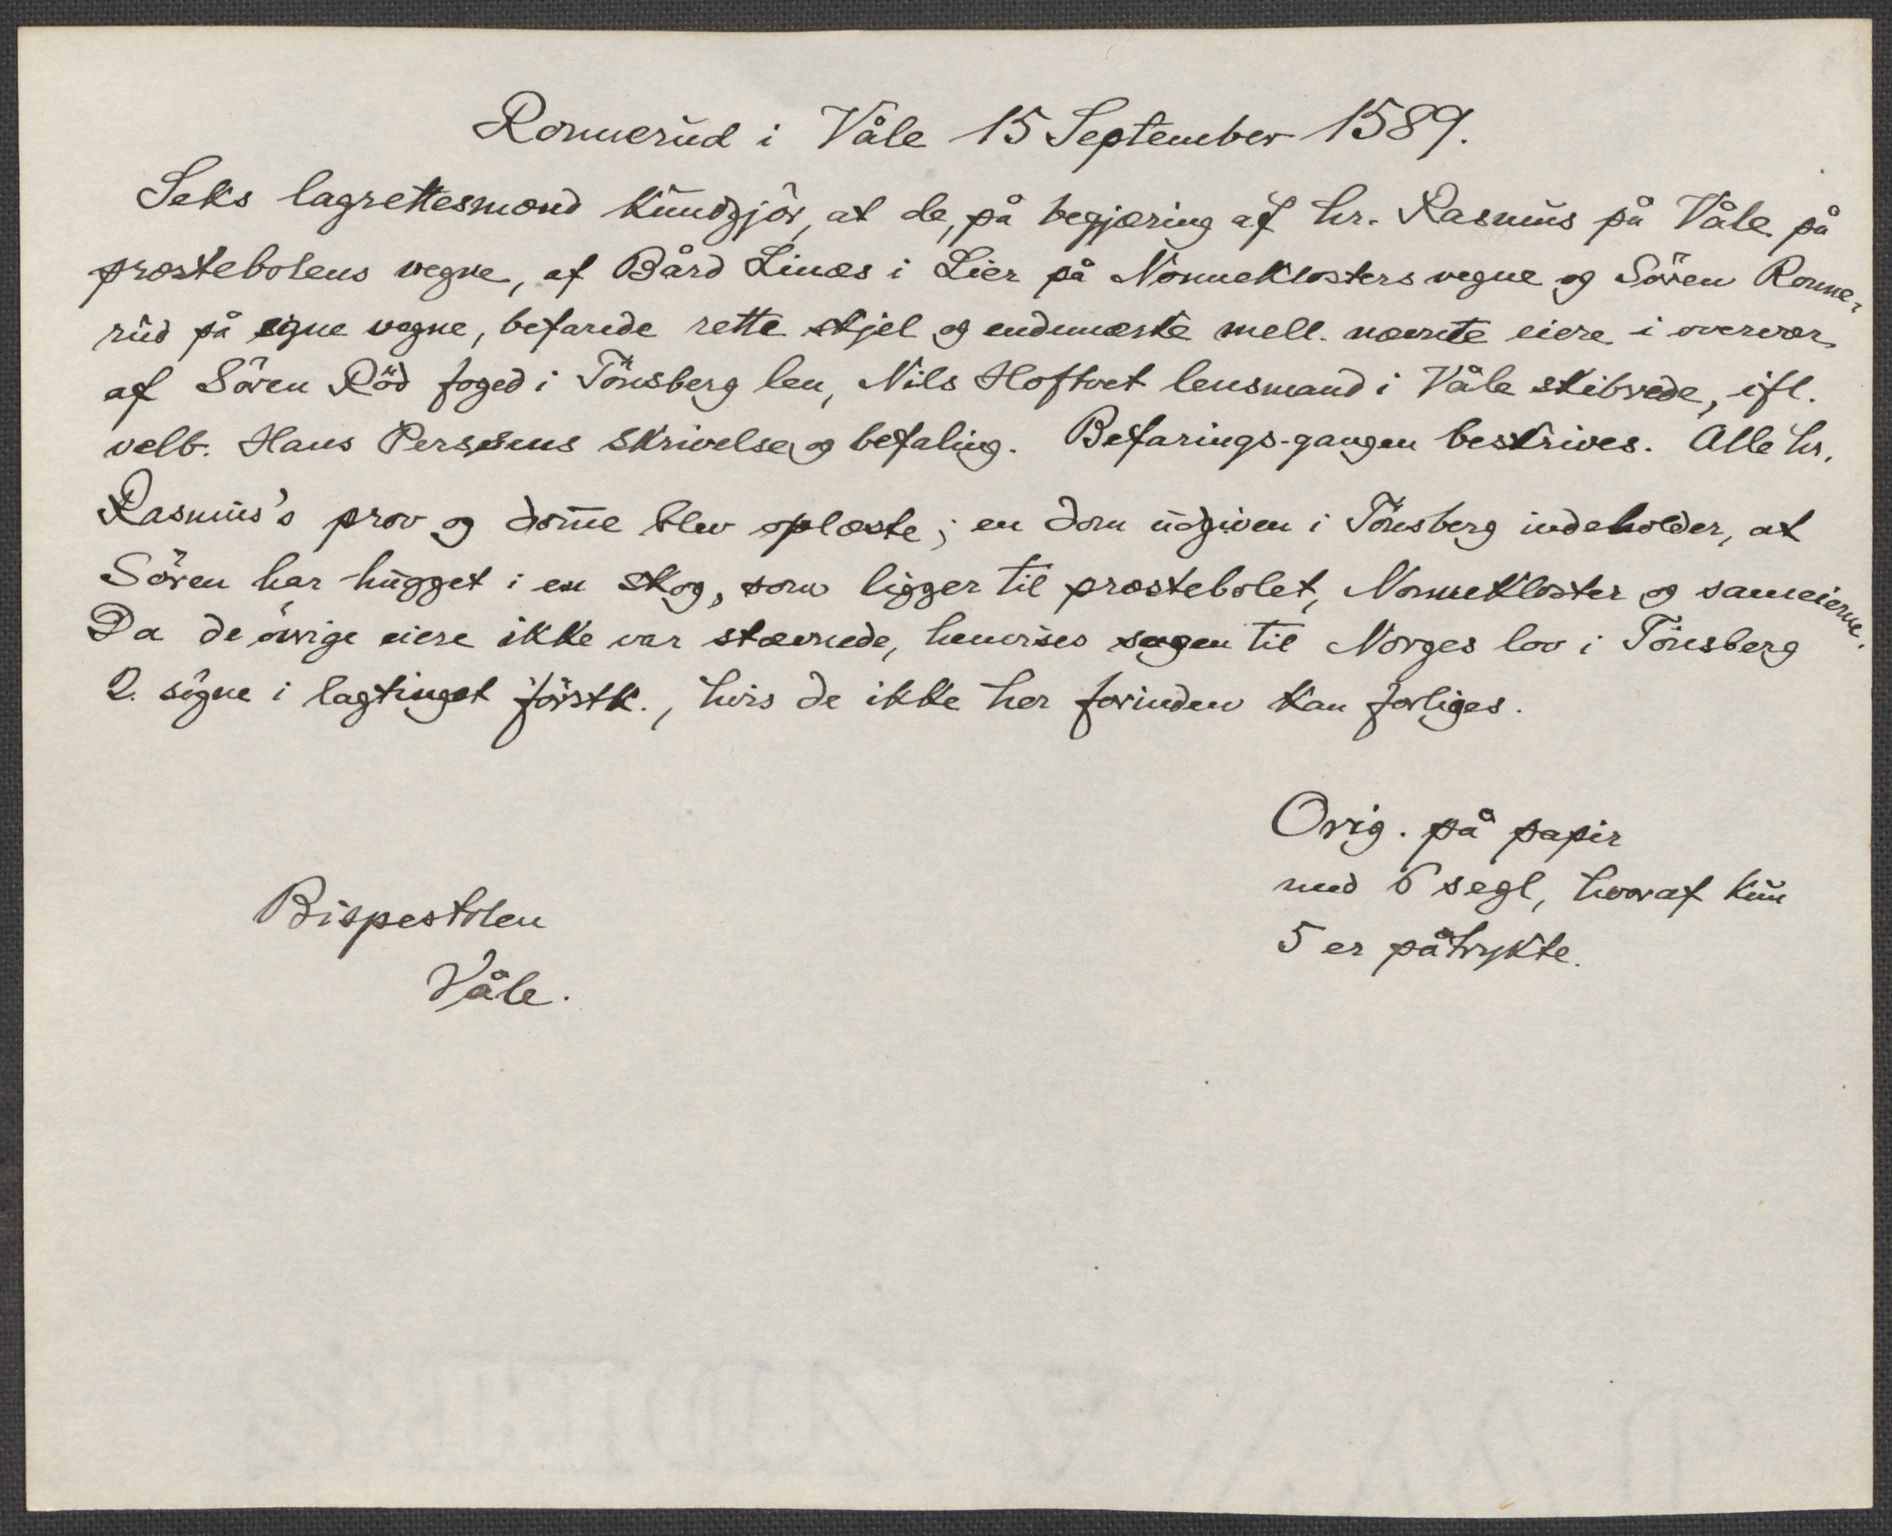 Ronnerud i Våle 15 September 1589.
Seks lagrettesmænd kundgjör, at de, på begjæring af hr. Rasmus på Våle på
præstebolens vegne, af Bård Linæs i Lier på Nonneklosters vegne og Sören Ronne-
rud på egne vegne, befarede rette skjel og endemæske mell. nævnte eiere i overvær
af Sören Röd foged i Tönsberg len, Nils Hoftvet lensmand i Våle skibrede, ifl.
velb. Hans Perssens skrivelse og befaling. Befarings-gangen beskrives. Alle hr.
Rasmus's prov og domme blev oplæste; en dom udgiven i Tönsberg indeholder, at
Sören har hugget i en skog, som ligger til præstebolet, Nonnekloster og sameierne.
Da de övrige eiere ikke var stævnede, henvises sagen til Norges lov i Tönsberg
2. sögne i lagtinget förstk., hvis de ikke her forinden kan forliges.
Orig. på papir
med 6 segl, hvoraf kun
5 er påtrykte.
Bispestolen
Våle.